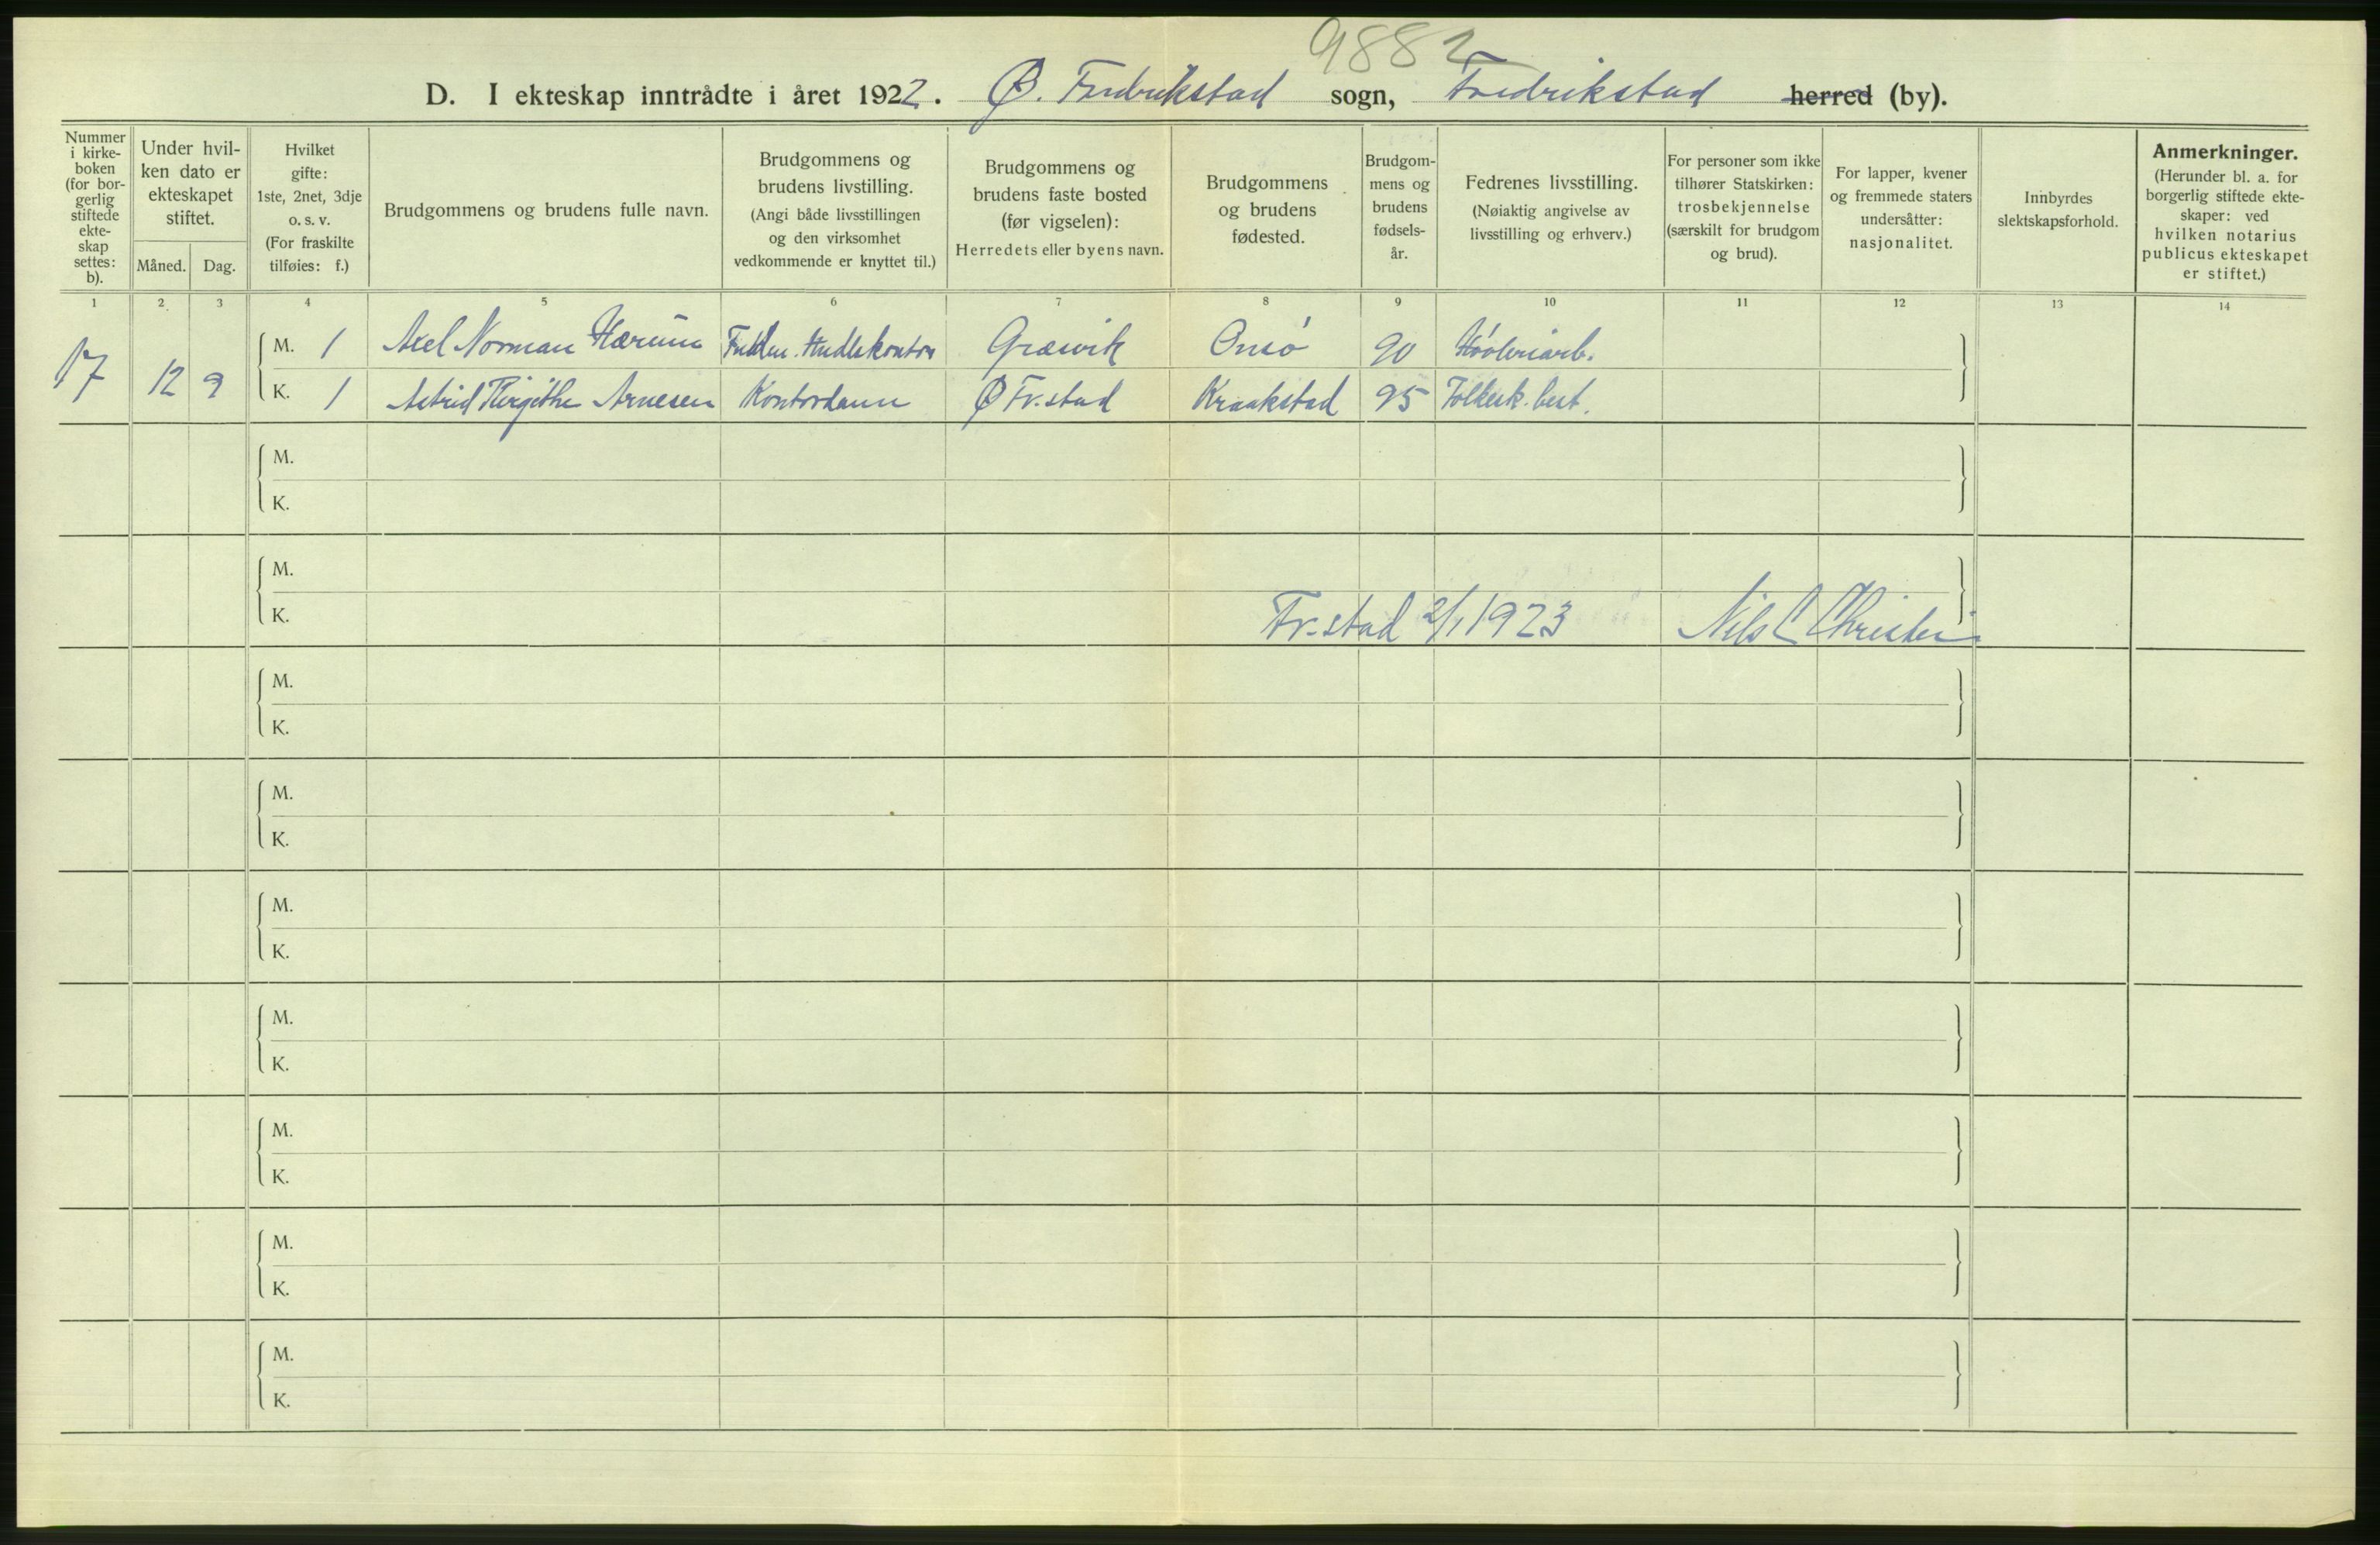 9882
D. I ekteskap inntrådte i året 1922. Ø. Fredrikstad sogn, Fredrikstad herred (by).
Nummer
i kirke-
boken
(for bor-
gerlig
stiftede
ekte-
skap
settes:
b).
Under hvil-
ken dato er
ekteskapet
stiftet.
Måned. Dag.
Hvilket
gifte:
1ste, 2net, 3dje
o. s. v.
(For fraskilte
tilføies: f.)
Brudgommens og brudens fulle navn.
Brudgommens og
brudens livstilling.
(Angi både livsstillingen
og den virksomhet
vedkommende er knyttet til.)
Brudgommens og
brudens faste bosted
(før vigselen):
Herredets eller byens navn.
Brudgommens
og brudens
fødested.
Brudgom-
mens og
brudens
fødsels-
år.
Fedrenes livsstilling.
(Nøiaktig angivelse av
livsstilling og erhverv.)
For personer som ikke
tilhører Statskirken:
trosbekjennelse
(særskilt for brudgom
og brud).
For lapper, kvener
og fremmede staters
undersåtter:
nasjonalitet.
Innbyrdes
slektskapsforhold.
Anmerkninger.
(Herunder bl. a. for
borgerlig stiftede ekte-
skaper: ved
hvilken notarius
publicus ekteskapet
er stiftet.)
1 2 3 4 5 6 7 8 9 10 11 12 13 14
17 12 9
M. 1 Axel Norman Hærum Græsvik Onsö 90 Høvleriarb.
K. 1 Astrid Birgithe Arnesen Kontordame Ø Fr.stad Kraakstad 95 Folkesk. best.
M.
K.
M.
K.
Fr.stad 2/1 1923 Nils C Christen
M.
K.
M.
K.
M.
K.
M.
K.
M.
K.
M.
K.
M.
K.